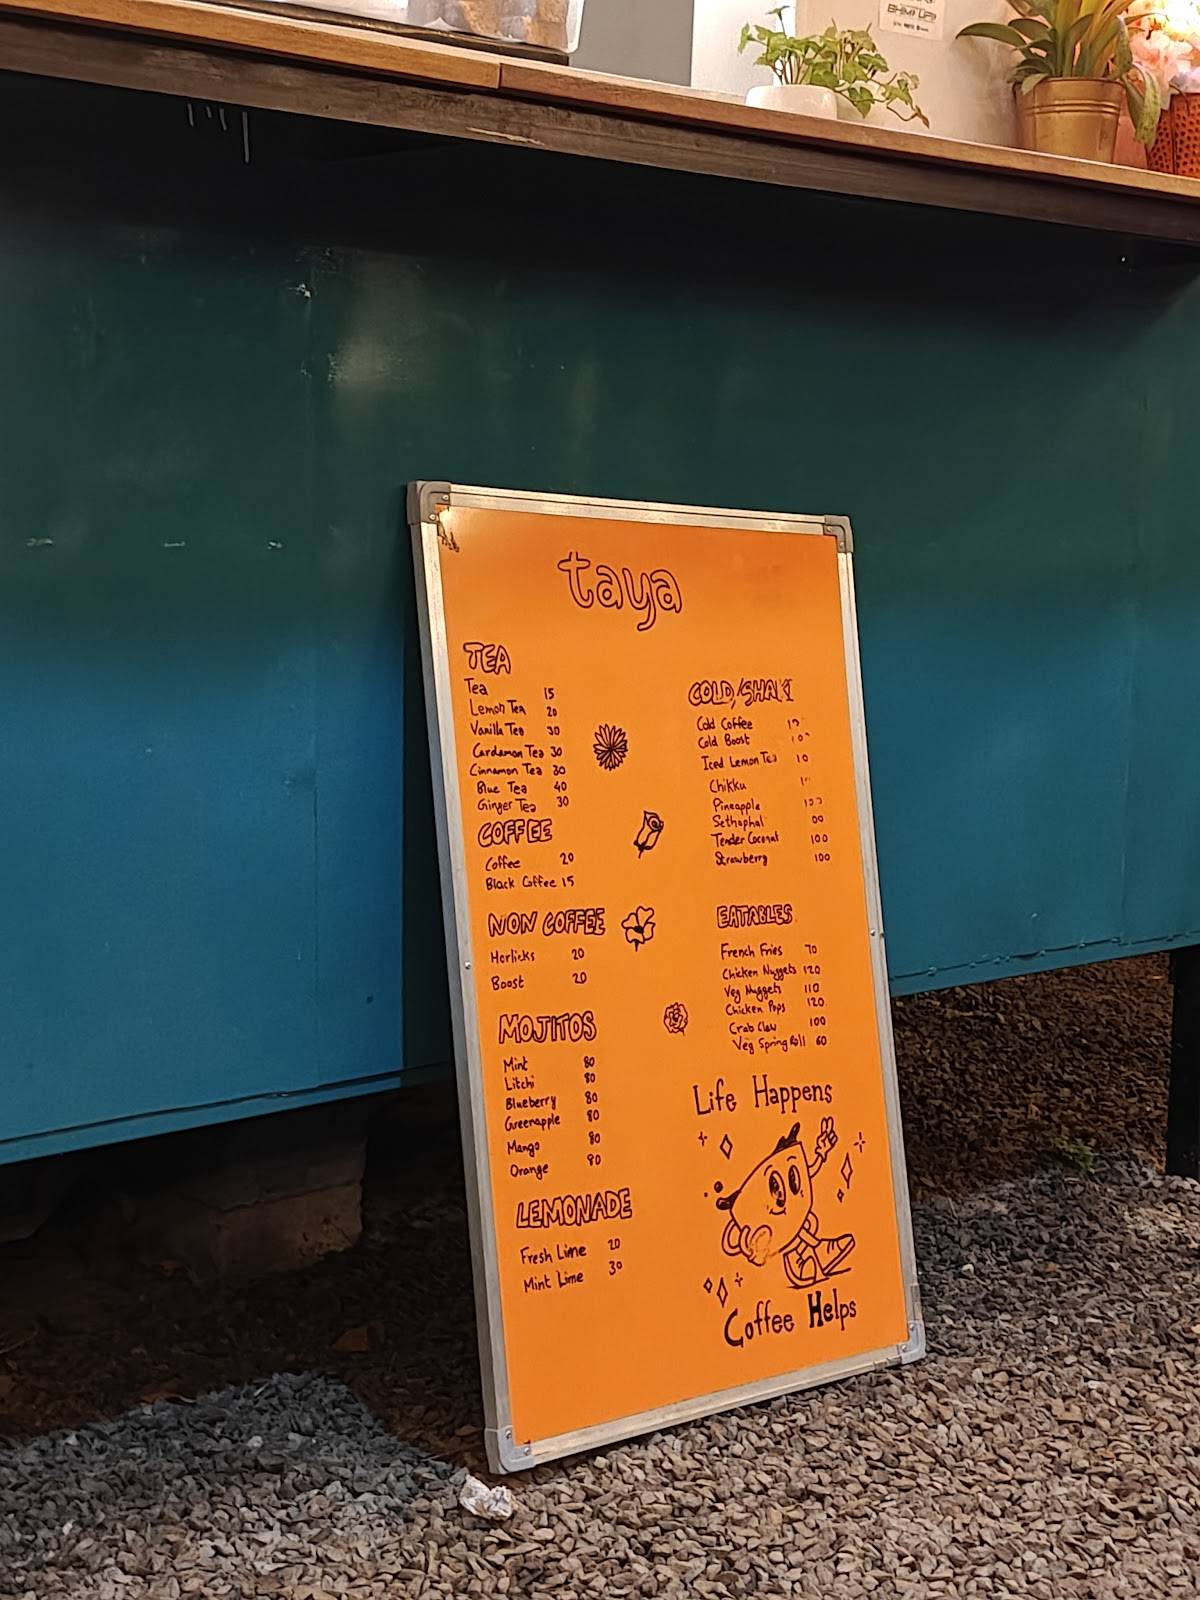 taya
TEA
Tea 15
Lemon Tea 20
Vanilla Tea 30
Cardamon Tea 30
Cinnamon Tea 30
Blue Tea 40
Ginger Tea 30
COFFEE
Coffee 20
Black Coffee 15
NON COFFEE
Horlicks 20
Boost 20
MOJITOS
Mint 80
Litchi 80
Blueberry 80
Greenapple 80
Mango 80
Orange 80
LEMONADE
Fresh Lime 20
Mint Lime 30
COLD/SHAK
Cold Coffee
Cold Boost
Iced Lemon Tea
Chikku
Pineapple
Sethaphal
Tender Coconut 100
Strawberry 100
EATABLES
French Fries 70
Chicken Nuggets 120
Veg Nuggets 110
Chicken Pops 120
Crab Claw 100
Veg Spring Roll 60
Life Happens
Coffee Helps